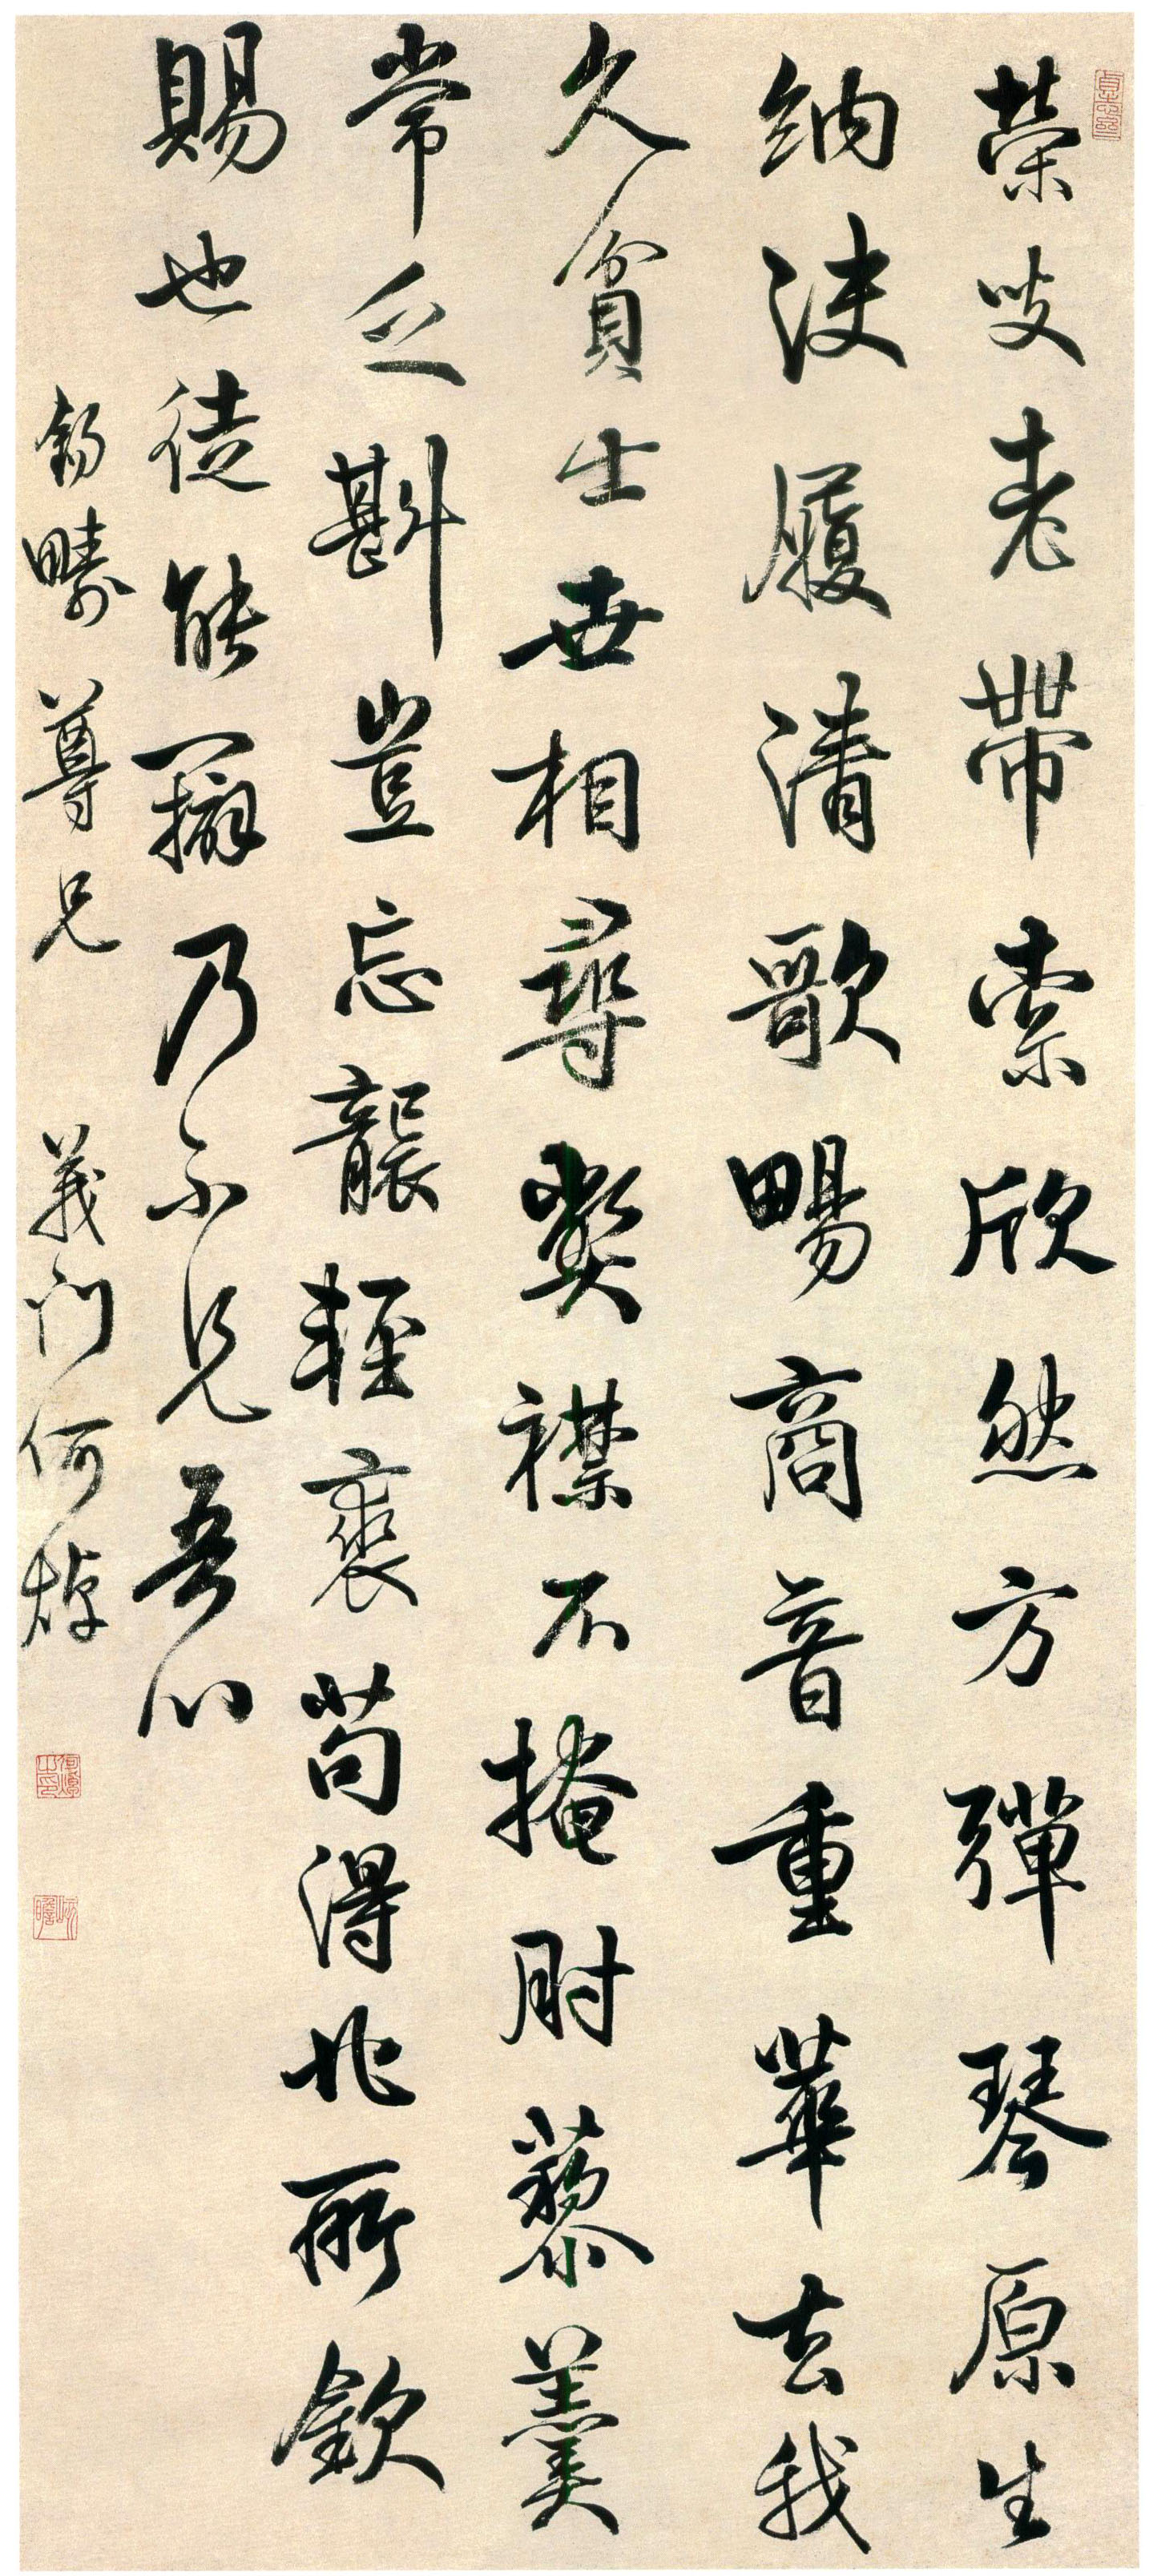 榮叟老帶索欣然方彈琴原生
納決履清歌暢商音重華去我
久貧士世相尋弊襟不掩肘藜羹
常乏斟豈忘襲輕裘苟得非所欽
賜也徒能辯乃不見吾心
錫疇尊兄 義門何焯